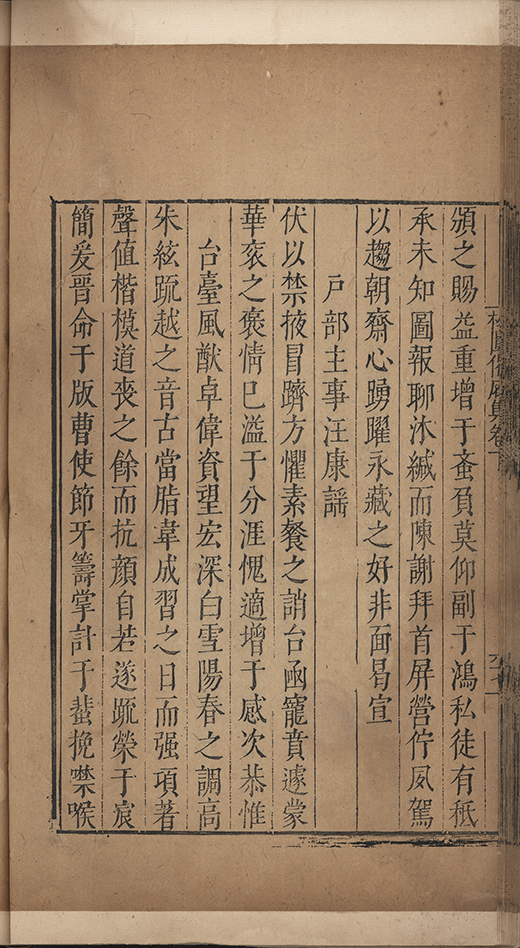 頒之賜益重增于蚉負莫仰副于鴻私徒有秪
承未知圖報聊沐緘而陳謝拜首屏營佇夙駕
以趨朝齋心踴躍永藏之好非面曷宣
戸部主事汪康謠
伏以禁掖冒躋方懼素餐之誚台函寵賁遽蒙
華衮之褒情已溢于分涯愧適增于感次恭惟
台臺風猷卓偉資望宏深白雪陽春之調高
朱絃疏越之音古當脂韋成習之日而强項著
聲值楷模道喪之餘而抗顔自若遂疏榮于宸
簡爰晉命于版曹使節牙籌掌計于蜚挽噤喉